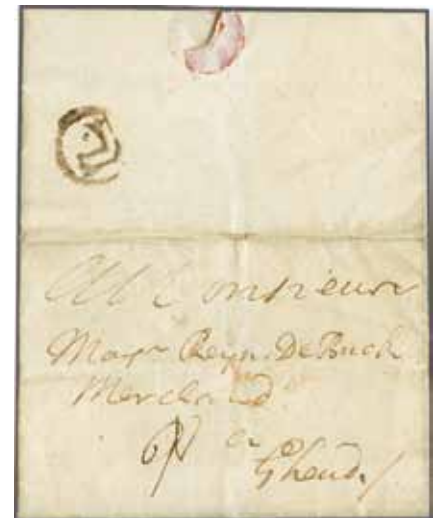 A Monsieur
Reyn. De Buck
Merchand
a
Ghend